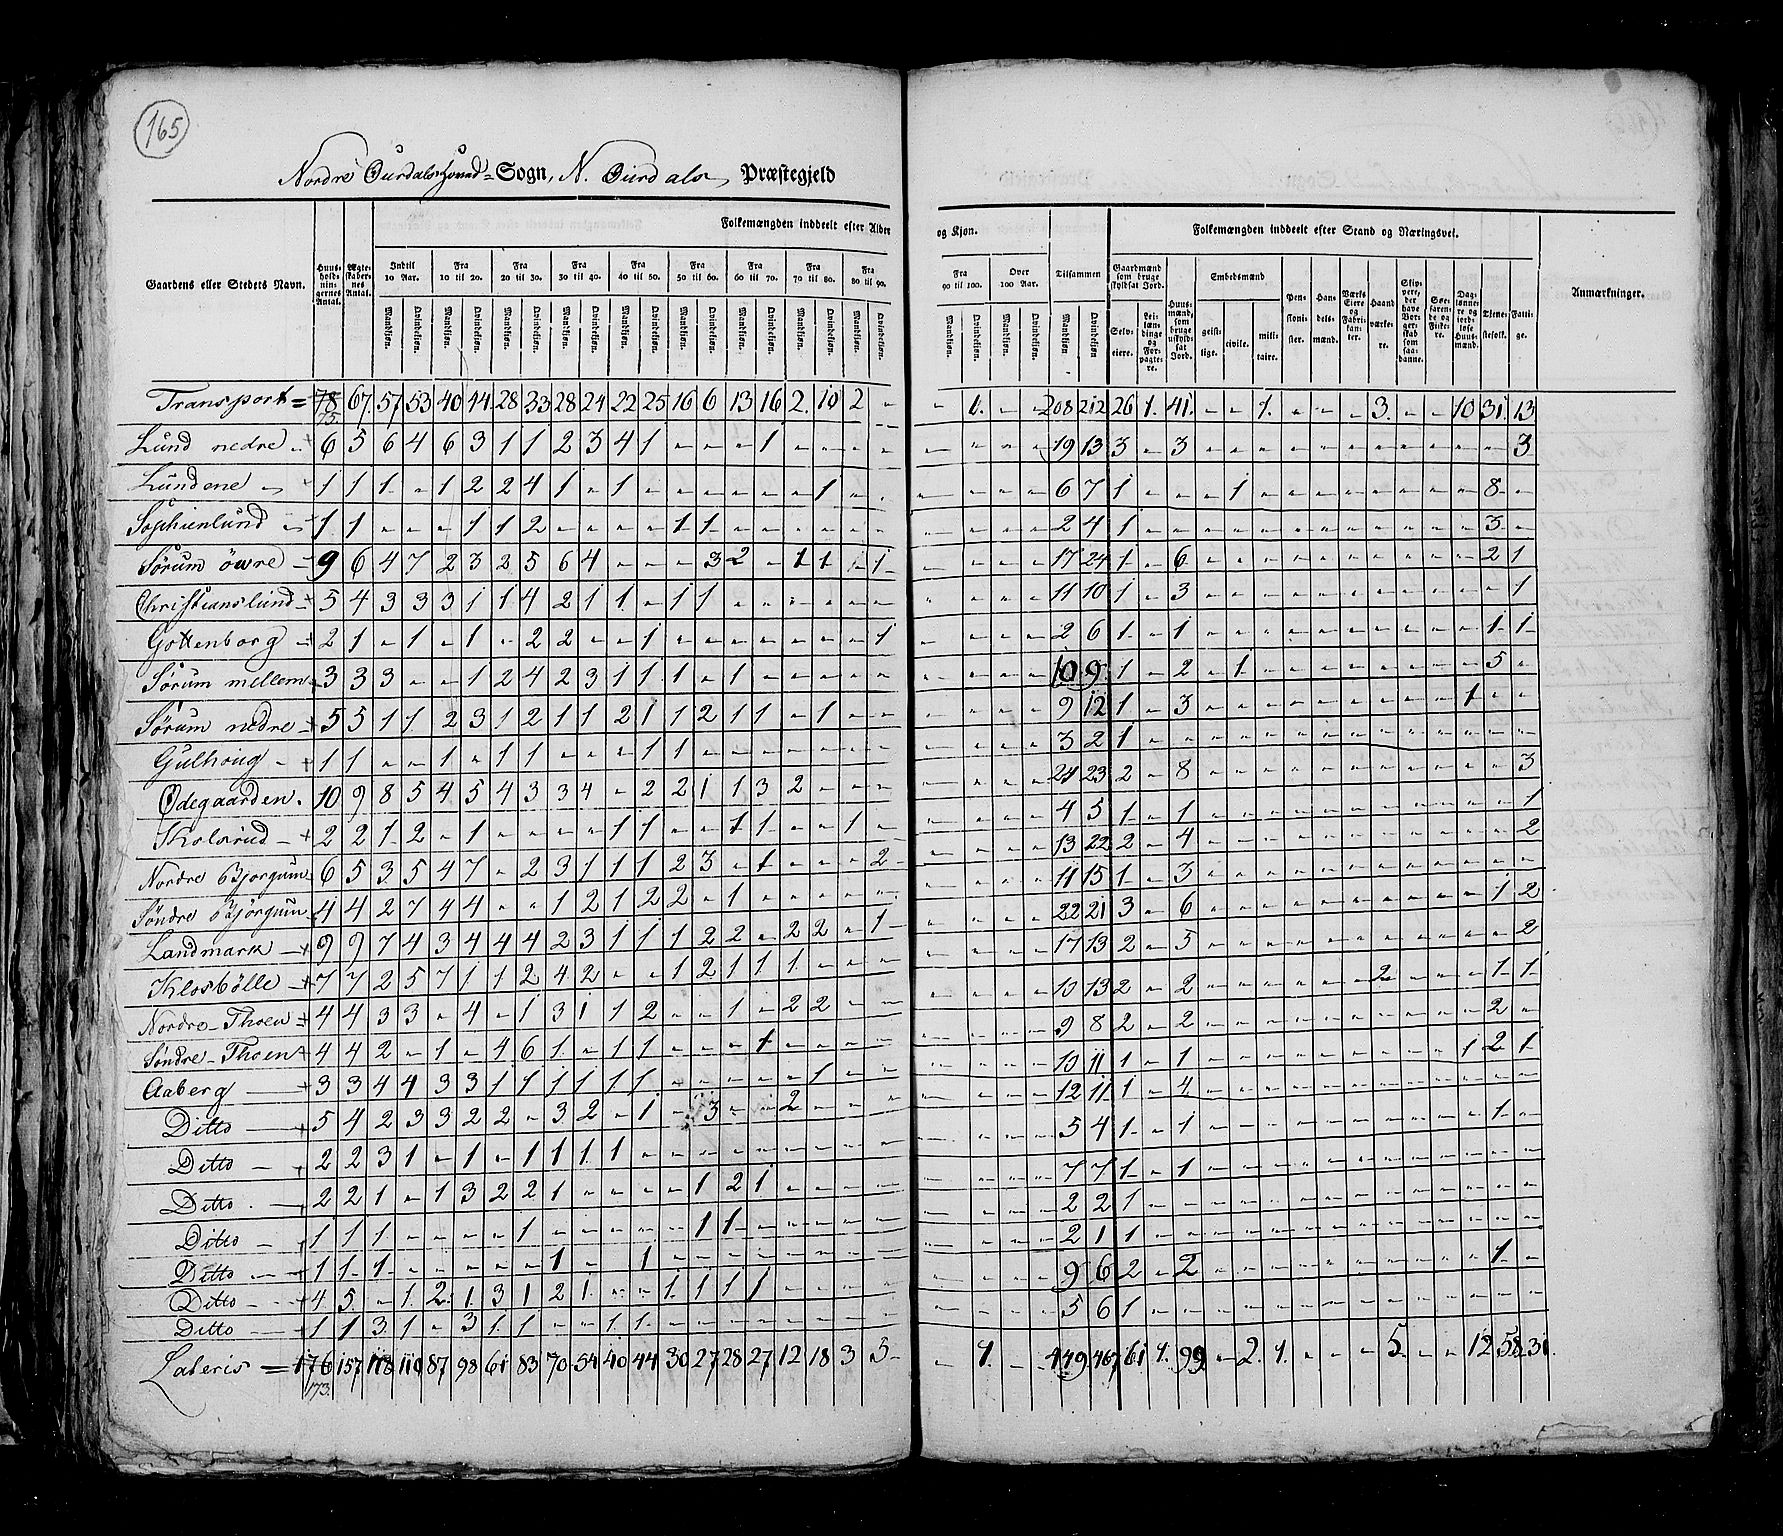 165
Nordre Ourdals Sogn, N. Ourdals Præstegjeld
Gaardens eller Stedets Navn.
Huusholdningernes Antal.
Ægteskabernes Antal.
Folkemængden inddeelt efter Alder og Kjøn.
Indtil 10 Aar. Fra 10 til 20. Fra 20 til 30. Fra 30 til 40. Fra 40 til 50. Fra 50 til 60. Fra 60 til 70. Fra 70 til 80. Fra 80 til 90. Fra 90 til 100. Over 100 Aar. Tilsammen
Mandkiøn. Qvindekiøn.
Folkemængden inddeelt efter Stand og Næringsvei.
Gaardmænd som bruge skyldsat Jord.
Selveiere.
Leilændinge og Forpagtere.
Huusmænd, som bruge uskyldsat Jord.
Embedsmænd
geistlige. civile. militaire.
Pensionister.
Handelsmænd.
Værks Eiere og Fabrikanter.
Haandværkere.
Skippere, der have Borgerskab som saadanne.
Søefarende og Fiskere.
Daglønnere og jordløse Huusmænd.
Tjenestefolk.
Fattige.
Anmærkninger.
Transport = 78 73. 67. 57 53 40 44 28 33 28 24 22 25 16 6 13 16 2. 10 2 - - 1. - - 208 212 26 1. 41. - - 1. - - - 3. - - 10 31. 13
Lund nedre 6 5 6 4 6 3 1 1 2 3 4 1 - - - 1 - - - - - - - - 19 13 3 - 3 - - - - - - - - - - - 3
Lundene 1 1 1 - 1 2 2 4 1 - 1 - - - - - - 1 - - - - - - 6 7 1 - - - 1 - - - - - - - - 8 -
Sophienlund 1 1 - - - 1 1 2 - - - - 1 1 - - - - - - - - - - 2 4 1 - - - - - - - - - - - - 3 -
Sørum öwre 9 6 4 7 2 3 2 5 6 4 - - - 3 2 - 1 1 - 1 - - - - 17 24 1 - 6 - - - - - - - - - - 2 1
Christianslund 5 4 3 3 3 1 1 4 2 1 1 - 1 1 - - - - - - - - - - 11 10 1 - 3 - - - - - - - - - - - 1
Gottenborg 2 1 - 1 - 1 - 2 2 - - 1 - - - - - - - 1 - - - - 2 6 1 - 1 - - - - - - - - - - 1 1
Sørum mellem 3 3 3 - - 1 2 4 2 3 1 1 1 - 1 - - - - - - - - - 10 9 1 - 2 - 1 - - - - - - - - 5 -
Sørum nedre 5 5 1 1 2 3 1 2 1 1 2 1 1 2 1 1 - 1 - - - - - - 9 12 1 - 3 - - - - - - - - - 1 - -
Gulhoug 1 1 - - 1 - 1 1 - - - 1 1 - - - - - - - - - - - 3 2 1 - - - - - - - - - - - - - -
Ødegaarden. 10 9 8 5 4 5 4 3 3 4 - 2 2 1 1 3 2 - - - - - - - 24 23 2 - 8 - - - - - - - - - - - 3
Kolsrud 2 2 1 2 - 1 - - - - 1 1 - - 1 1 - - 1 - - - - - 4 5 1 - 1 - - - - - - - - - - - 1
Nordre Bjørgum 6 5 3 5 4 7 - 2 3 1 1 1 2 3 - 1 - - - 2 - - - - 13 22 2 - 4 - - - - - - - - - - - 2
Søndre Bjørgum 4 4 2 7 4 4 - - 1 2 1 2 2 - 1 - - - - - - - - - 11 15 1 - 3 - - - - - - - - - - - -
Landmark 9 9 7 4 3 4 4 4 2 3 1 1 1 2 2 - 2 2 - 1 - - - - 22 21 3 - 6 - - - - - - - - - - 1 2
Klosbölle 7 7 2 5 7 1 1 2 4 2 - - 1 2 1 1 1 - - - - - - - 17 13 2 - 5 - - - - - - - - - - - 2
Nordre Thoen 4 4 3 3 - 4 - 1 3 1 1 2 - - 1 - 2 2 - - - - - - 10 13 2 - 2 - - - - - - 2 - - - 1 1
Søndre Thoen 4 4 2 - 1 - 4 6 1 - 1 1 - - - 1 - - - - - - - - 9 8 2 - 2 - - - - - - - - - - 2 -
Aaberg 3 3 4 4 3 3 1 1 1 1 1 1 - - - - - 1 - - - - - - 10 11 1 - 1 - - - - - - - - - 1 2 1
Ditto 5 4 2 3 3 2 2 - 3 2 - 1 - 3 - - 2 - - - - - - - 12 11 1 - 4 - - - - - - - - - - - -
Ditto 2 2 3 1 - 1 - 1 1 1 1 - - - - - - - - - - - - - 5 4 1 - 1 - - - - - - - - - - 1 -
Ditto 2 2 1 - 1 3 2 2 1 - - - - 1 2 1 - - - - - - - - 7 7 1 - 1 - - - - - - - - - - - -
Ditto 1 1 1 - - - - 1 - - - - - 1 1 - - - - - - - - - 2 2 1 - - - - - - - - - - - - - -
Ditto 1 1 1 - - - - - 1 - - 1 - - - - - - - - - - - - 2 1 1 - - - - - - - - - - - - - -
Ditto 4 5 - 1 2 1 3 1 2 1 - - 1 1 1 1 - - - - - - - - 9 6 2 - 2 - - - - - - - - - - 1 -
Ditto 1 1 3 1 - 3 1 1 - - 1 1 - - - - - - - - - - - - 5 6 1 - - - - - - - - - - - - - -
Lateris = 176 173. 157 118 110 87 98 61 83 70 54 40 44 30 27 28 27 12 18 3 5 - 1. - - 449 467 61 1. 99 - 2. 1. - - - 5. - - 12 58 31